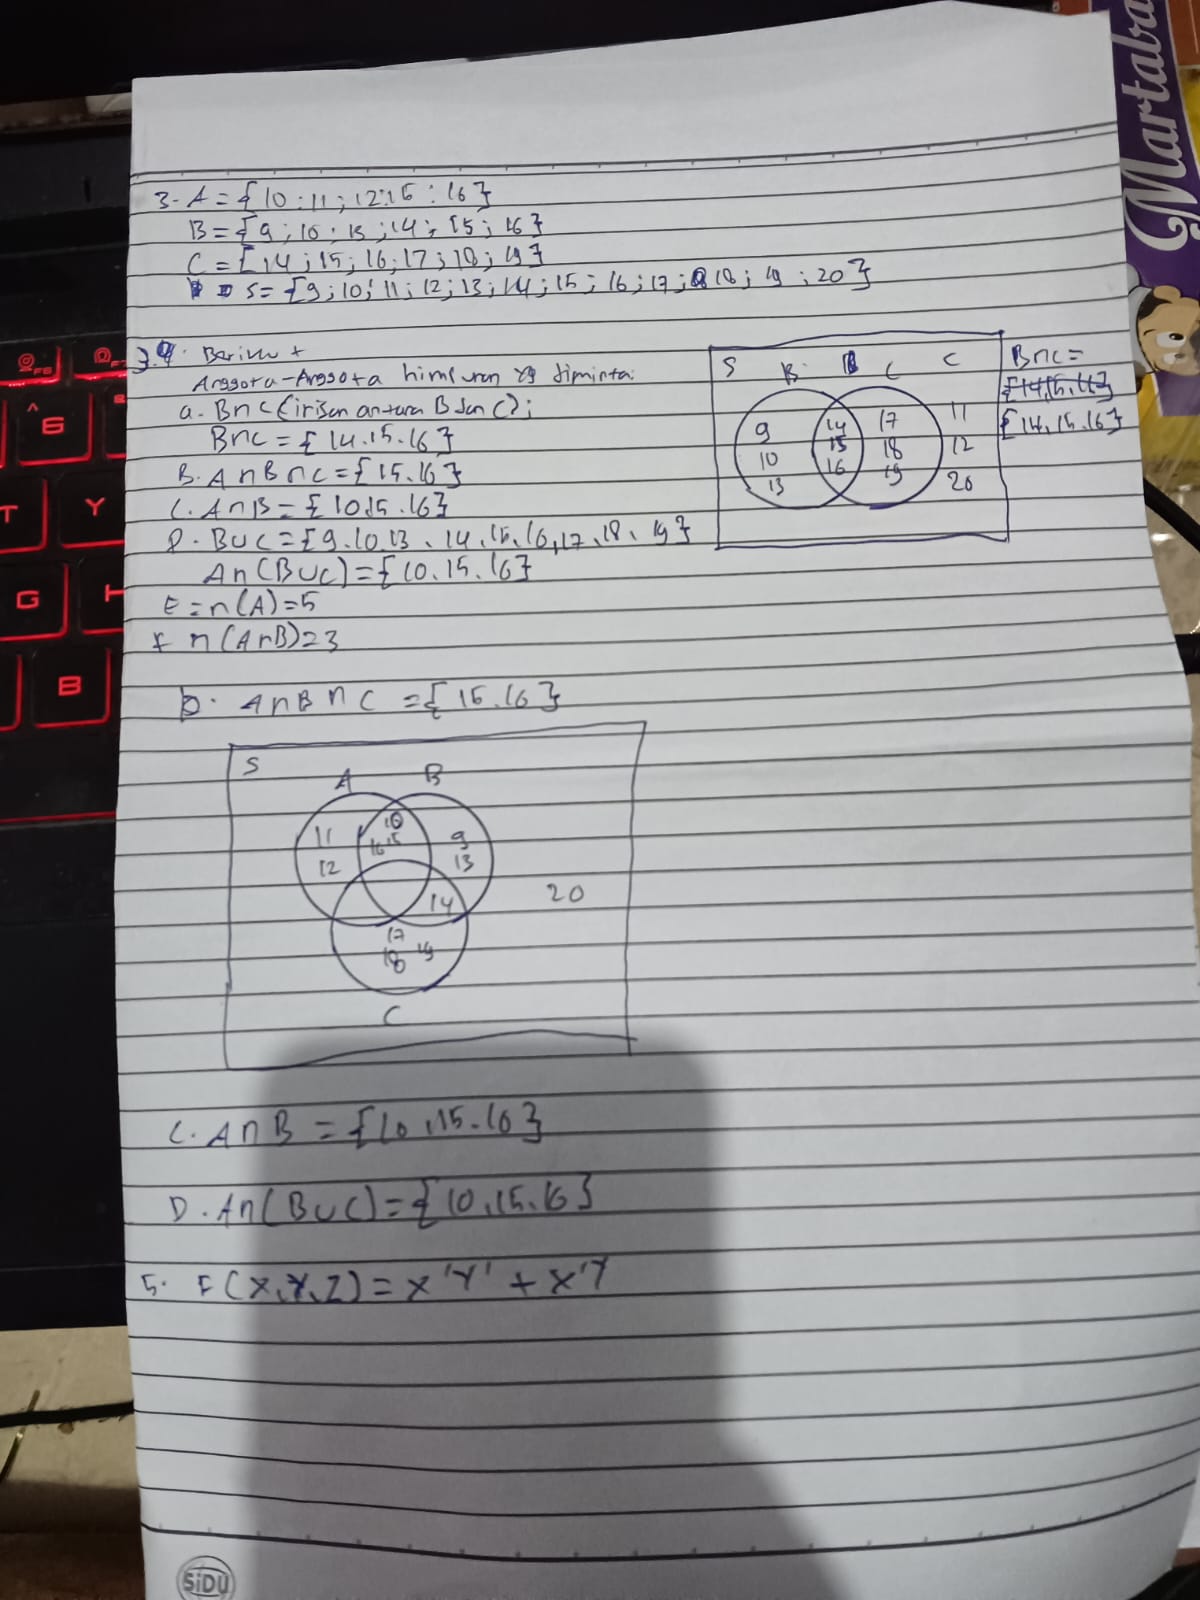 3. A = { 10 ; 11 ; 12 ; 15 ; 16 }
B = { 9 ; 10 ; 13 ; 14 ; 15 ; 16 }
C = { 14 ; 15 ; 16 ; 17 ; 18 ; 19 }
S = { 9 ; 10 ; 11 ; 12 ; 13 ; 14 ; 15 ; 16 ; 17 ; 18 ; 19 ; 20 }
Anggota-Anggota himpunan yg diminta:
a. B∩C (irisan antara B dan C) ;
B∩C = { 14. 15. 16 }
B. A∩B∩C = { 15. 16 }
C. A∩B = { 10.15. 16 }
D. B∪C = { 9. 10. 13, 14, 15, 16, 17, 18, 19 }
A∩(B∪C) = { 10. 15. 16 }
E = n(A) = 5
F n(A∩B) = 3
S B B C C
9 14 17 11
10 15 18 12
13 16 19 20
B∩C =
{ 14, 15, 16 }
{ 14, 15. 16 }
b. A∩B∩C = { 15. 16 }
S
A B
11 10 9
16 15
12 13
14 20
17
18 19
C
C. A∩B = { 10, 15. 16 }
D. A∩(B∪C) = { 10, 15. 16 }
5. F(X,Y,Z) = X'Y' + X'Y
SiDU
Martaba
F5
^
6
T
Y
G
H
B